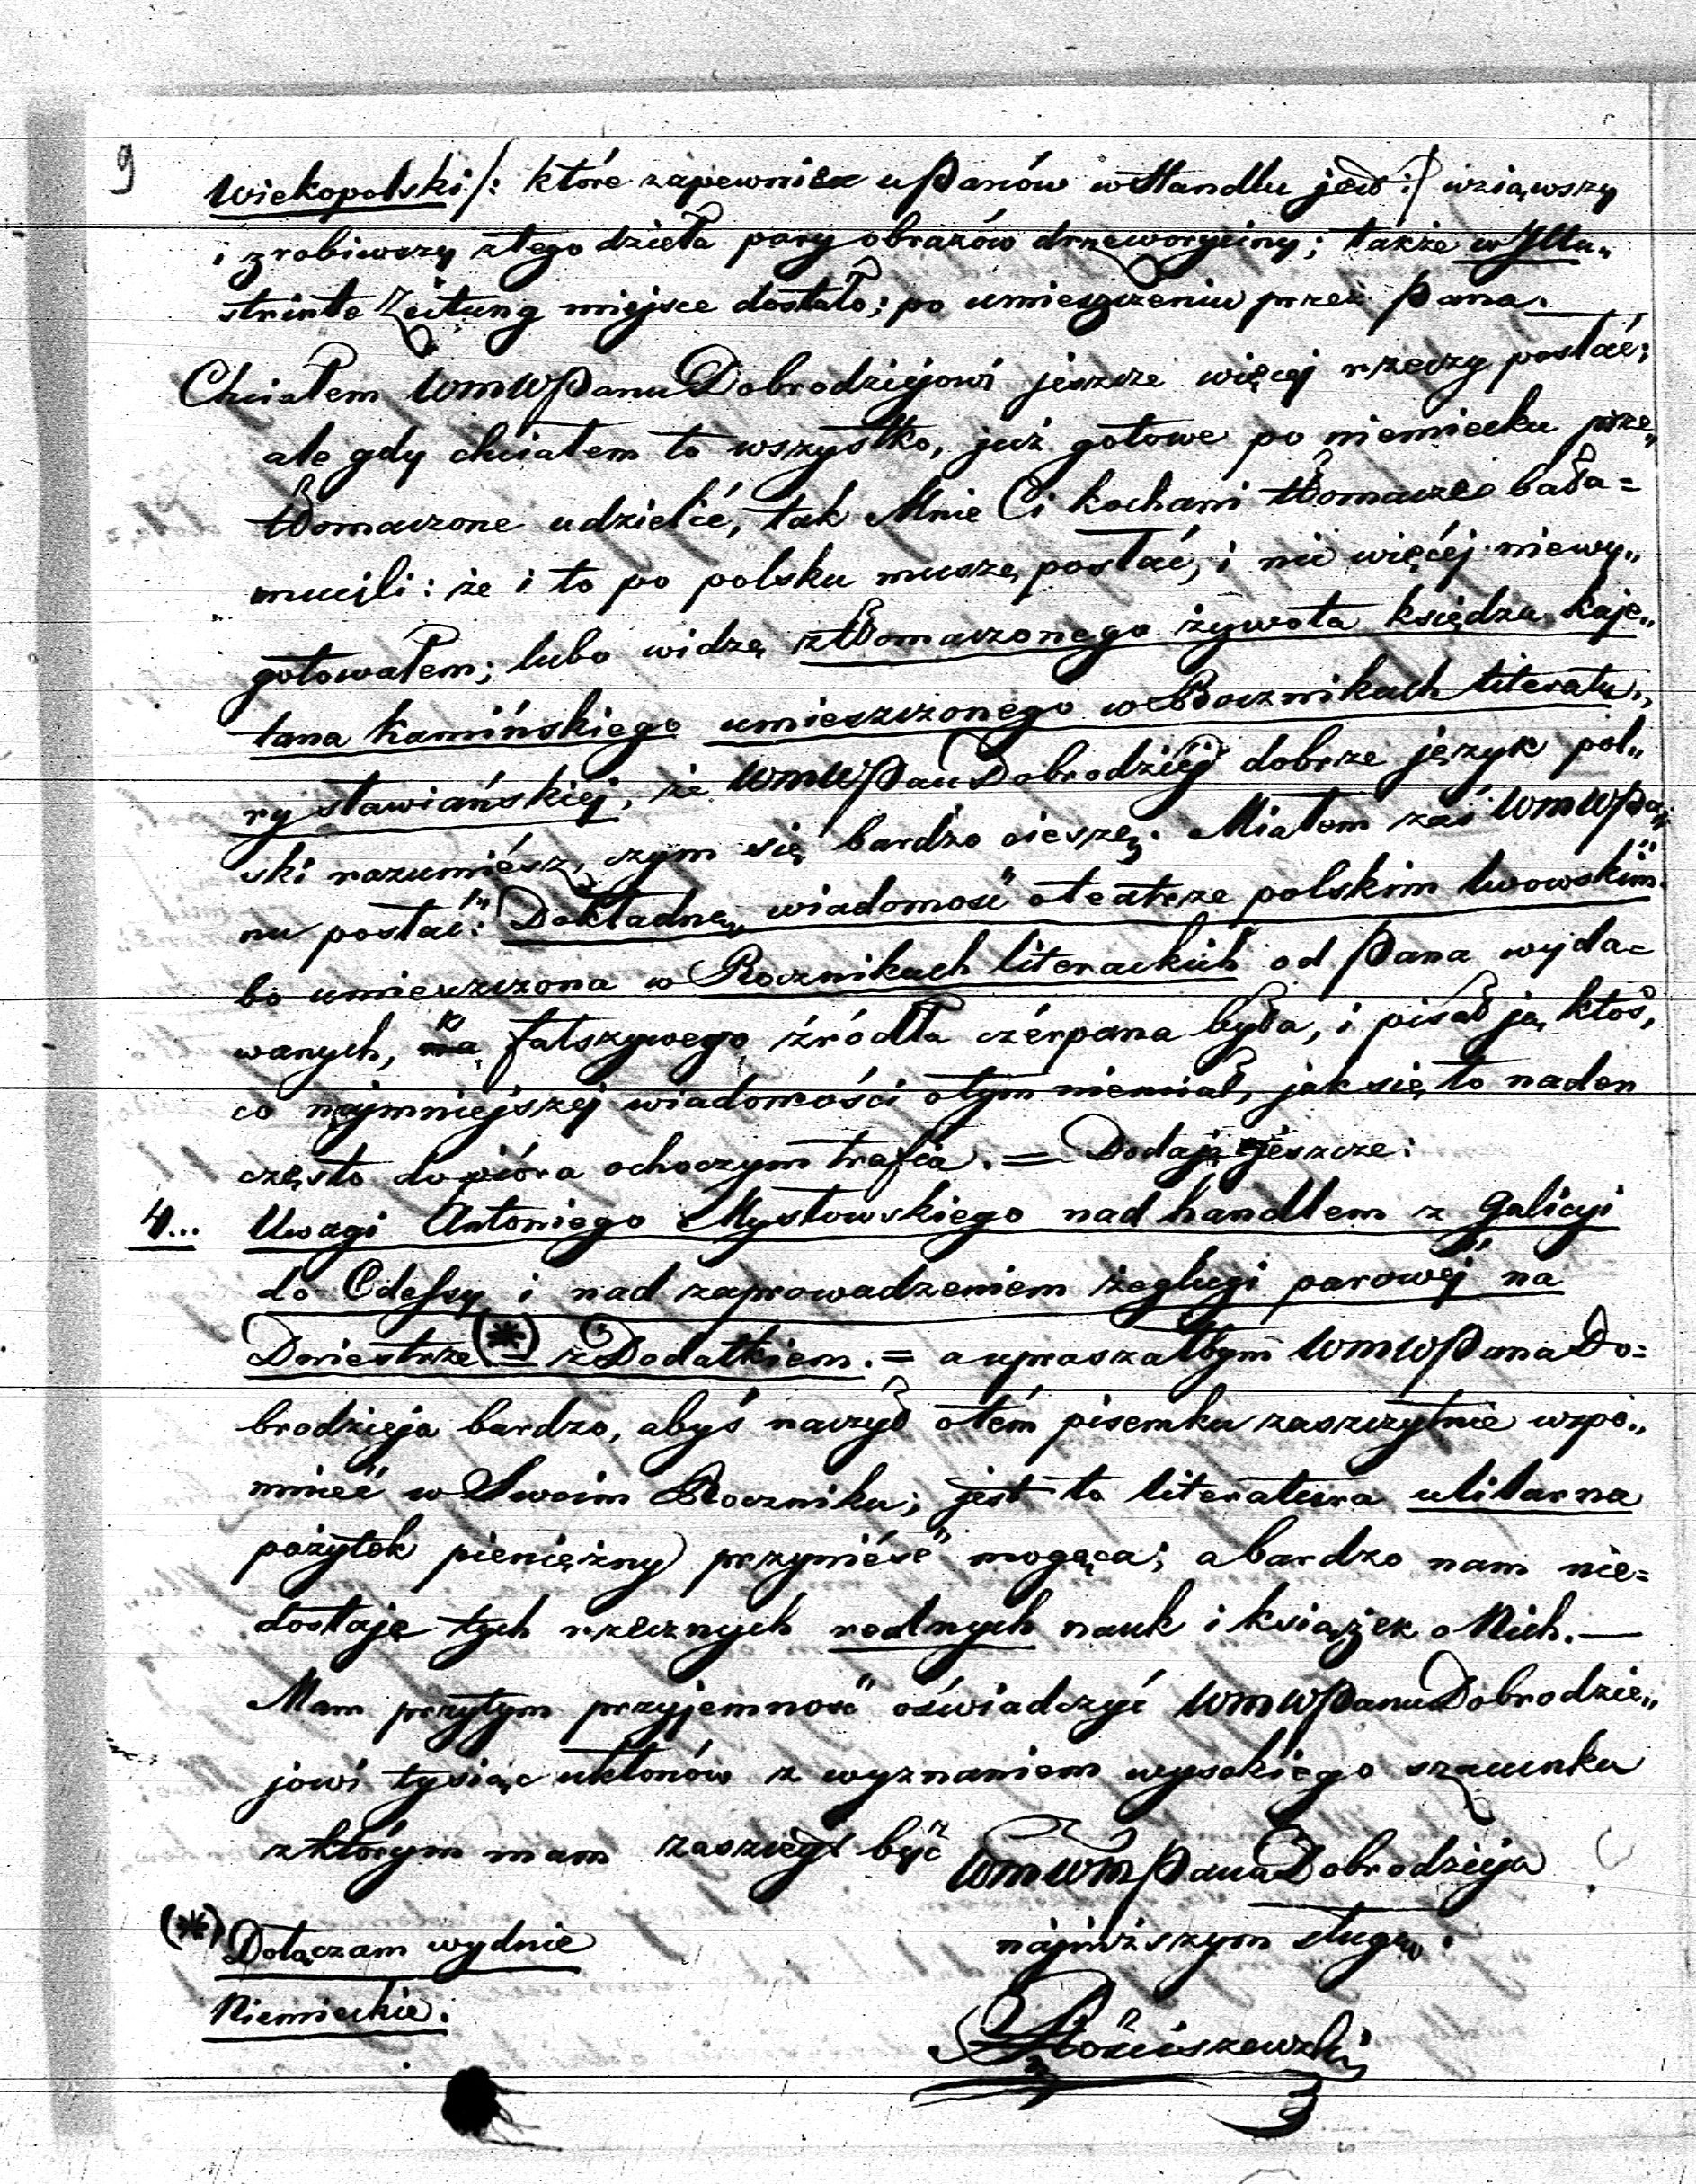 9
Wiekopolski /: które zapewnie u Panów w Handlu jest :/ wziąwszy
i zrobiwszy z tego dzieła pary obrazów drzeworyciny; także w Jllu„
strirte Zeitung miejsce dostało; po umieszczeniu przez Pana.
Chciałem WMWPanu Dobrodziejowi jeszcze więcej rzeczy posłać;
ale gdy chciałem to wszystko, już gotowe po niemiecku prze„
tłomaczone udzielić, tak Mnie Ci kochani tłomacze bała=
mucili: że i to po polsku muszę posłać, i nic więcéj niewy„
gotowałem; lubo widzę z tłomaczonego żywota księdza Kaje„
tana Kamińskiego umieszczonego w Rocznikach literatu„
ry sławiańskiej, że WMWPan Dobrodziéj dobrze język pol„
ski rozumiész, czym się bardzo cieszę. Miałem zaś WMWPa„
nu posłać: Dokładną wiadomość o teatrze polskim lwowskim.
bo umieszczona w Rocznikach literackich od Pana wyda=
wanych, z fałszywego źródła czérpana była, i pisał ją ktoś,
co najmniejszej wiadomości o tym niemiał, jak się to nader
często do pióra ochoczym trafia. = Dodaję jeszcze:
4... Uwagi Antoniego Mysłowskiego nad handlem z Galicyi
do Odessy i nad zaprowadzeniem żeglugi parowéj na
Dniestrze (*) = z Dodatkiem. = a upraszałbym WMWPana Do=
brodzieja bardzo, abyś raczył o tém pisemku zaszczytnie wspo„
mnieć w Swoim Roczniku; jest to literatura utilarna
pożytek pieniężny przynieść mogąca; a bardzo nam nie=
dostaje tych rzecznych rolnych nauk i książek o Nich. —
Mam przytym przyjemność oświadczyć WMWPanu Dobrodzie„
jowi tysiąc ukłonów z wyznaniem wysokiego szacunku
z którym mam zaszczyt być WMWMPana Dobrodzieja
najniższym sługą.
(*) Dołączam wydnie
Niemieckie.